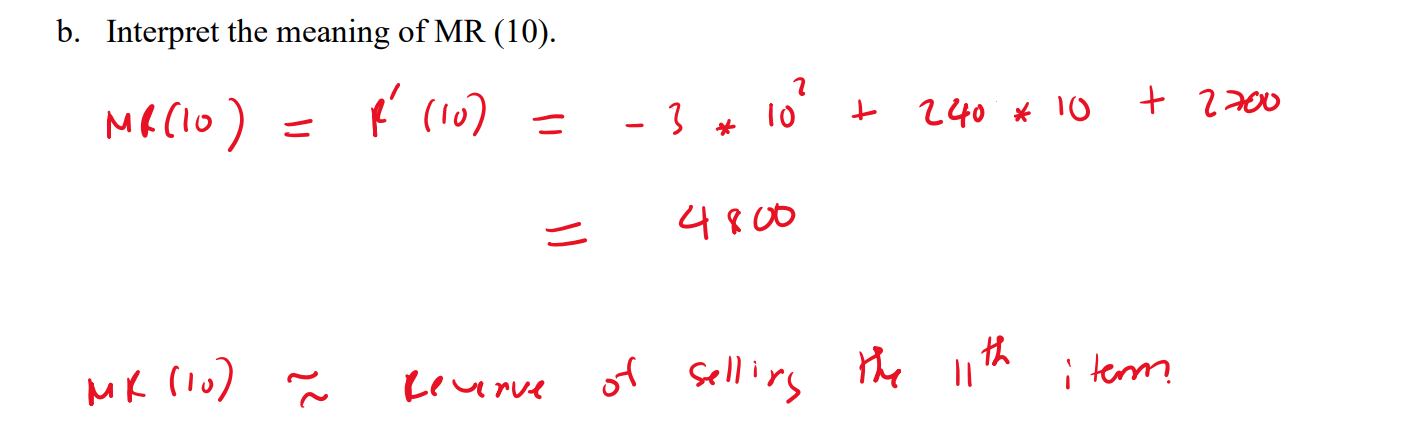 b. Interpret the meaning of MR (10).
MR(10) = R'(10) = - 3 * 10² + 240 * 10 + 2700
= 4800
MR (10) ≈ Revenue of selling the 11th item